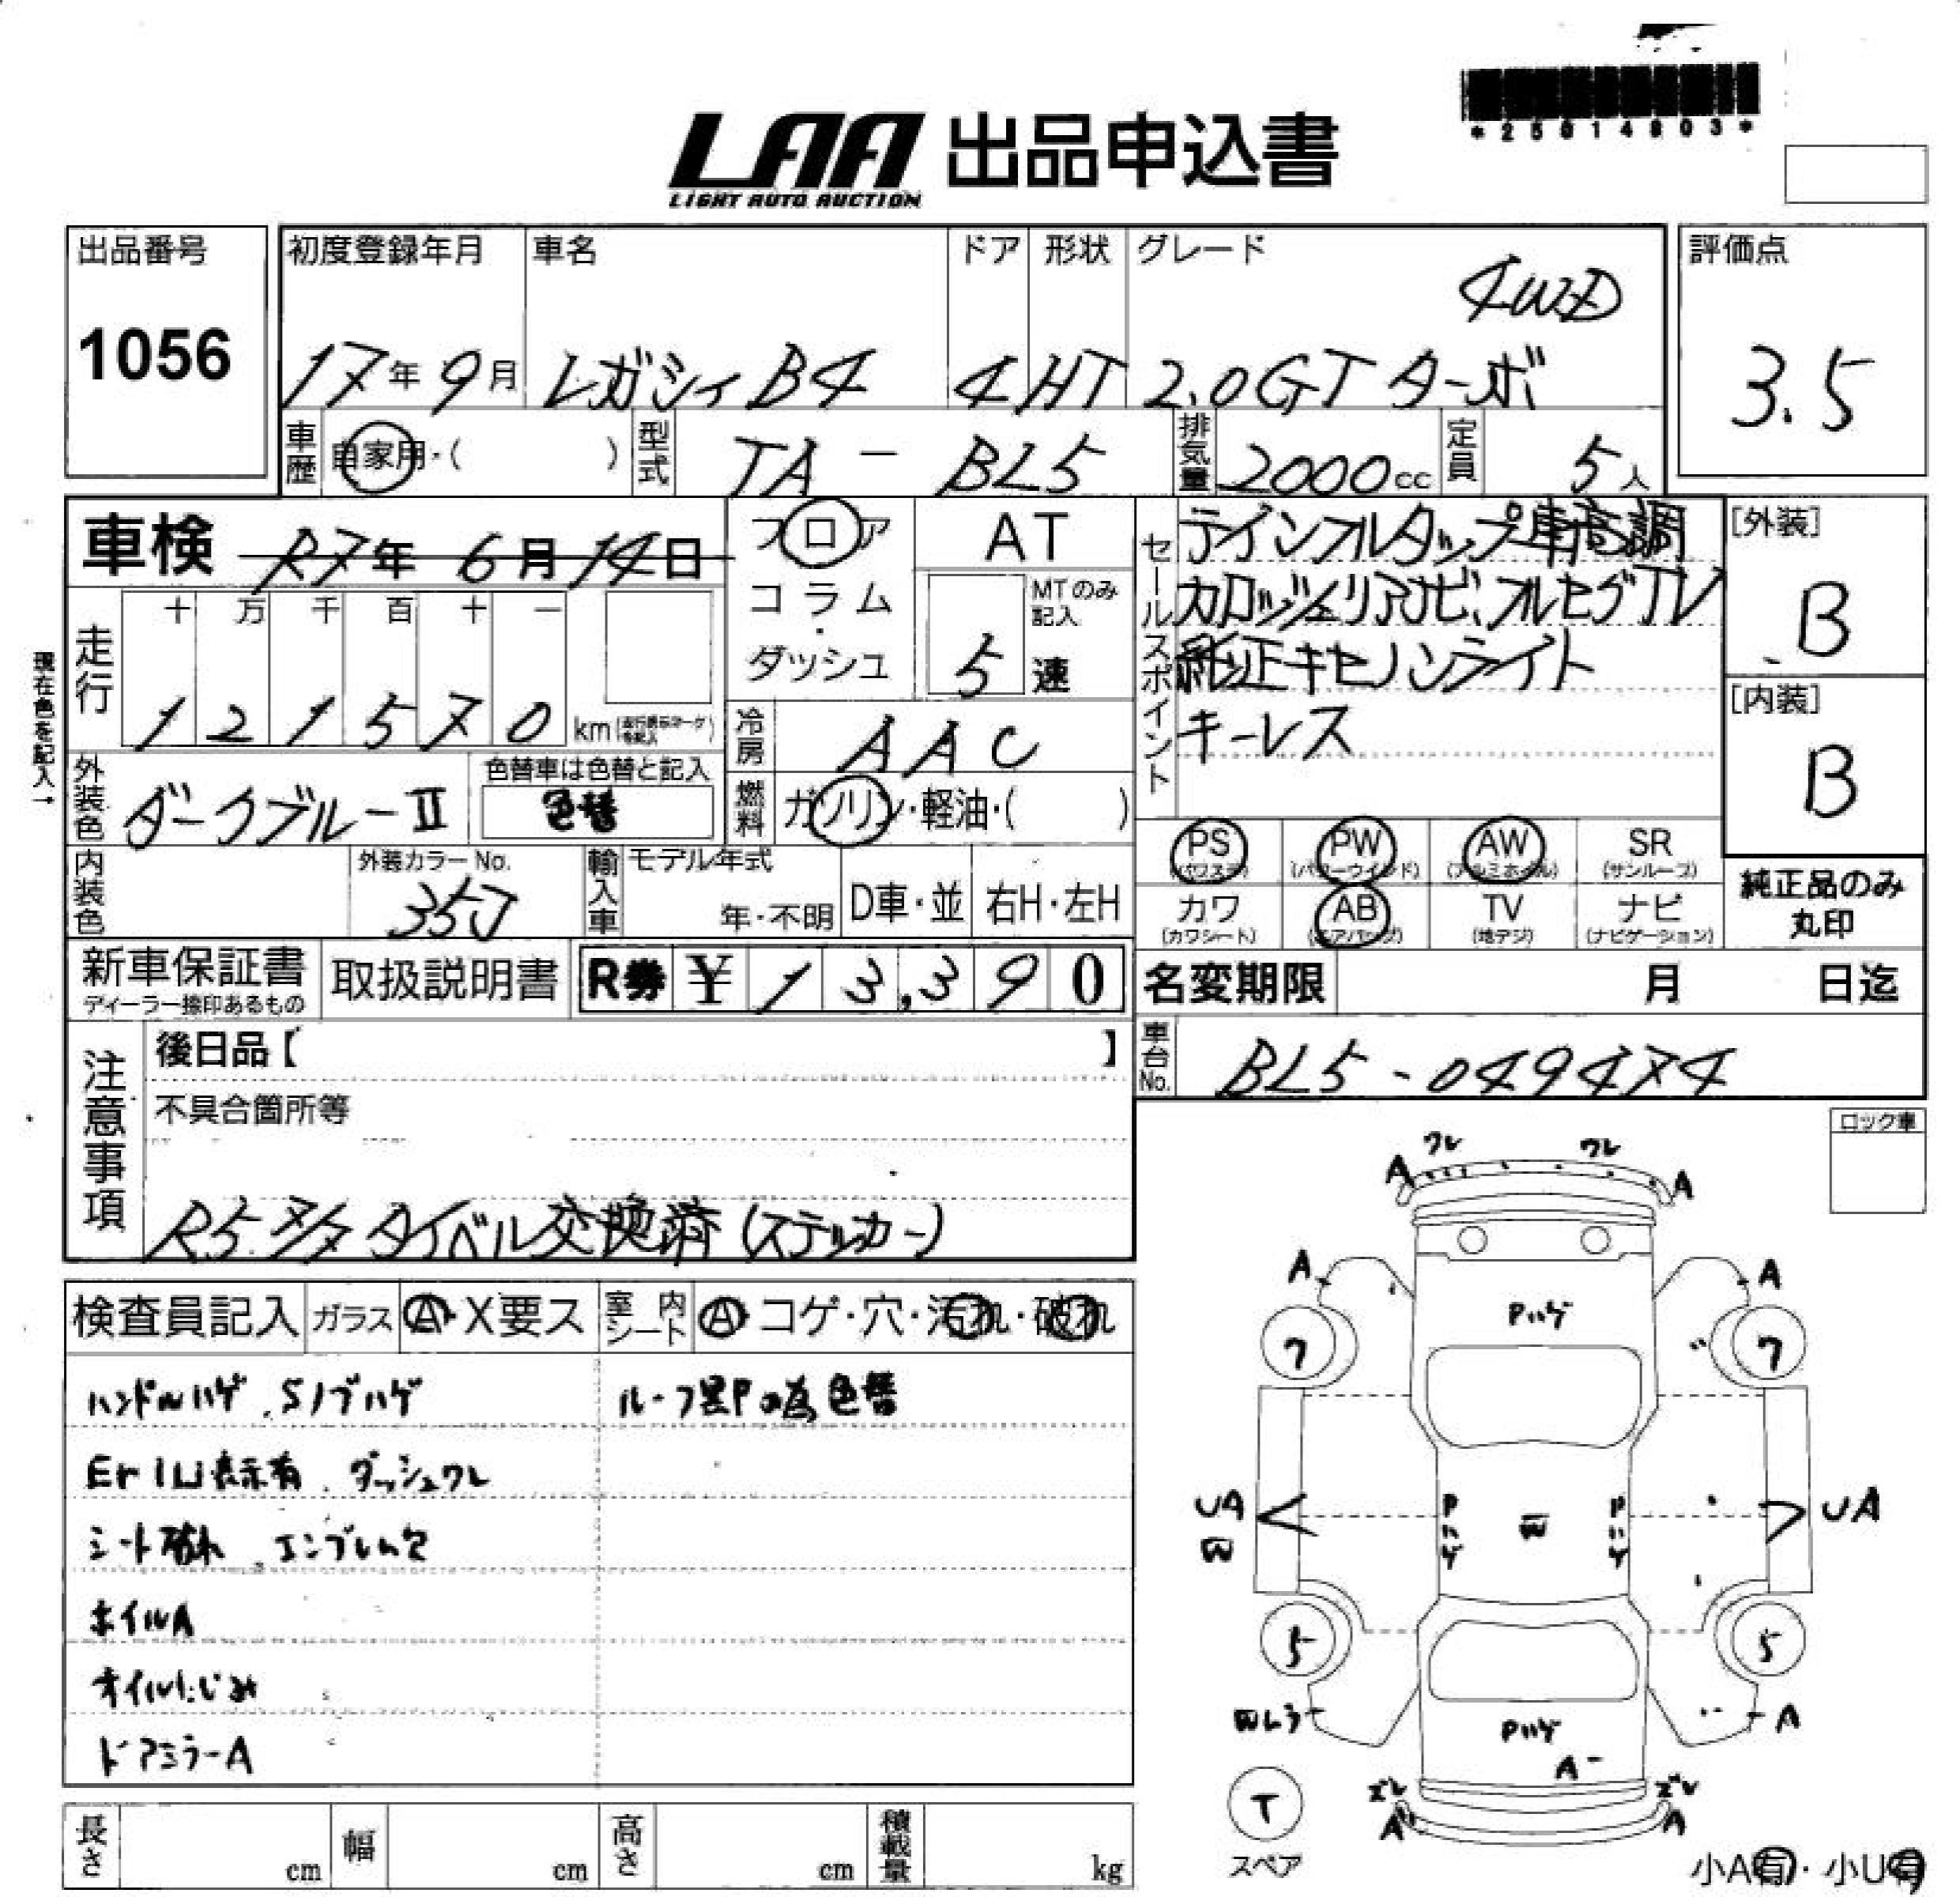 *25014803*
LAA 出品申込書
LIGHT AUTO AUCTION
出品番号
1056
初度登録年月
17年9月
車名
レガシィB4
ドア
4
形状
HT
グレード
4WD
2.0GT ターボ
評価点
3.5
車歴 自家用・( )
型式 TA - BL5
排気量 2000cc
定員 5人
車検 R7年 6月 14日
フロア
コラム
・
ダッシュ
AT
MTのみ記入
5 速
セールスポイント
テインフルタップ車高調
カロッツェリアナビ、フルセグTV
純正キセノンライト
キーレス
[外装]
B
[内装]
B
現在色を記入→
走行
十 万 千 百 十 一
1 2 1 5 7 0 km
冷房 AAC
燃料 ガソリン・軽油・( )
外装色 ダークブルーII
色替車は色替と記入
色替
PS (パワステ)
PW (パワーウインド)
AW (アルミホイル)
SR (サンルーフ)
カワ (カワシート)
AB (エアバッグ)
TV (地デジ)
ナビ (ナビゲーション)
純正品のみ
丸印
内装色
外装カラーNo.
35J
輸入車
モデル年式
年・不明
D車・並
右H・左H
新車保証書
ディーラー捺印あるもの
取扱説明書
R券 ¥ 13,390
名変期限 月 日迄
車台No. BL5-049474
注意事項
後日品【 】
不具合箇所等
R5. タイベル交換済(ステッカー)
ロック車
検査員記入
ガラス A・X要ス
室内シート A・コゲ・穴・汚れ・破れ
ハンドルハゲ、Sノブハゲ
ルーフ黒Pの為色替
表示有、ダッシュワレ
シート破れ、エンブレム欠
ホイルA
オイルにじみ
ドアミラーA
ワレ ワレ
A A
A A
Pハゲ
7 7
UA UA
W
Pハゲ W Pハゲ
5 5
A
Pハゲ
A
ズレ ズレ
A A
T
スペア
小A有・小U有
長さ cm
幅 cm
高さ cm
積載量 kg